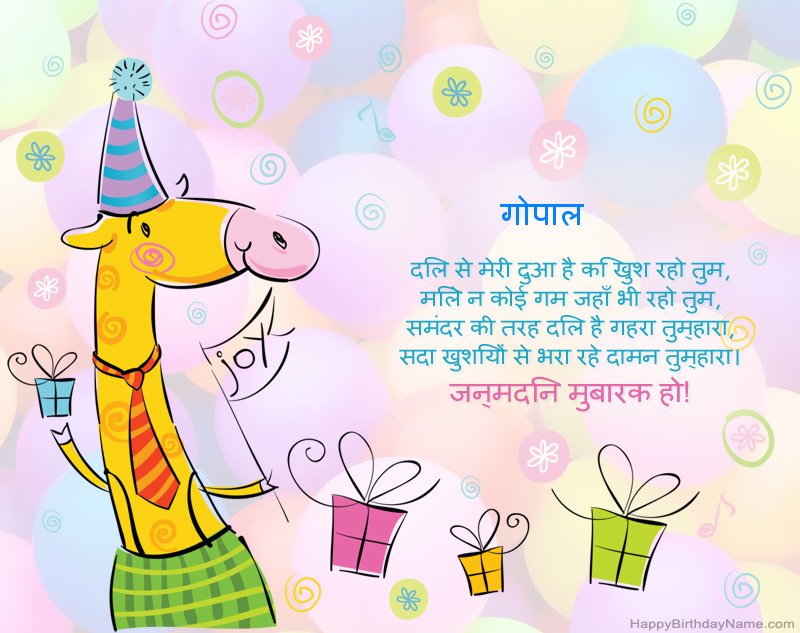 गोपाल
दिल से मेरी दुआ है कि खुश रहो तुम,
मिले न कोई गम जहाँ भी रहो तुम,
समंदर की तरह दिल है गहरा तुम्हारा,
सदा खुशियों से भरा रहे दामन तुम्हारा।
जन्मदिन मुबारक हो!
joy
HappyBirthdayName.com